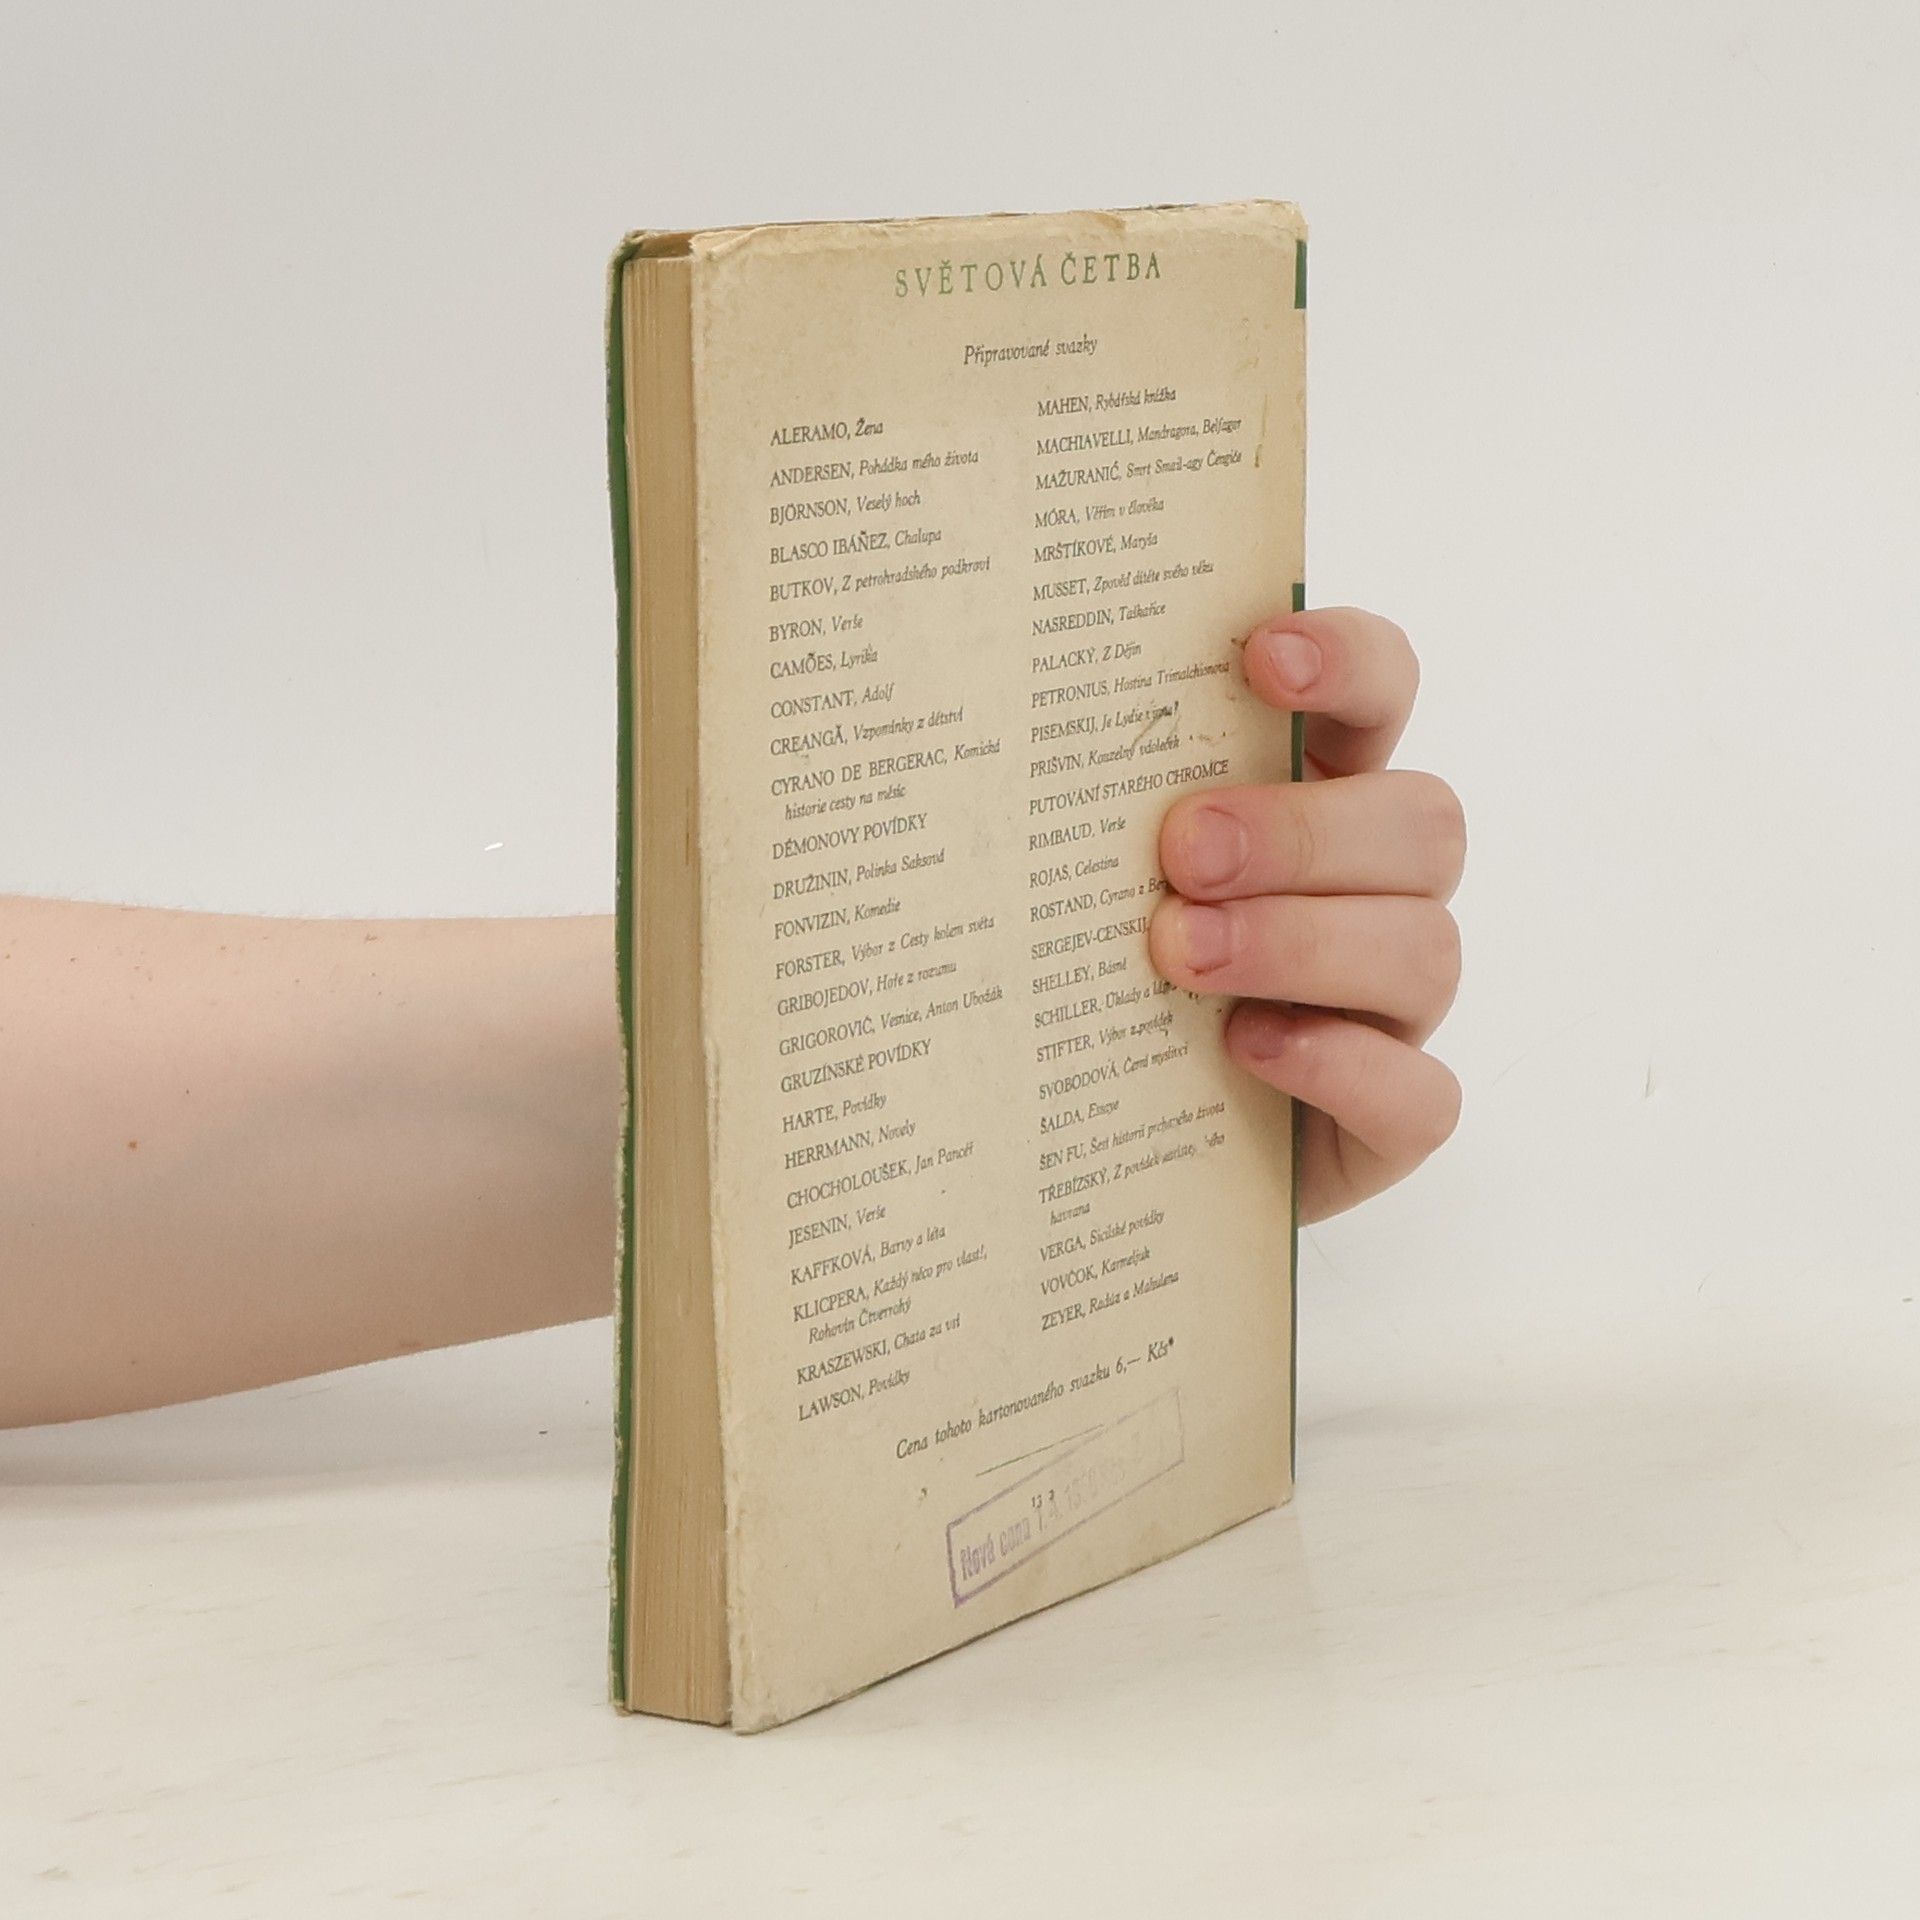 SVĚTOVÁ ČETBA
Připravované svazky
ALERAMO, Žena
ANDERSEN, Pohádka mého života
BJÖRNSON, Veselý hoch
BLASCO IBÁÑEZ, Chalupa
BUTKOV, Z petrohradského podkroví
BYRON, Verše
CAMÕES, Lyrika
CONSTANT, Adolf
CREANGĂ, Vzpomínky z dětství
CYRANO DE BERGERAC, Komická
historie cesty na měsíc
DÉMONOVY POVÍDKY
DRUŽININ, Polinka Saksová
FONVIZIN, Komedie
FORSTER, Výbor z Cesty kolem světa
GRIBOJEDOV, Hoře z rozumu
GRIGOROVIČ, Vesnice, Anton Ubožák
GRUZÍNSKÉ POVÍDKY
HARTE, Povídky
HERRMANN, Novely
CHOCHOLOUŠEK, Jan Pancéř
JESENIN, Verše
KAFFKOVÁ, Barvy a léta
KLICPERA, Každý něco pro vlast!,
Rohovín Čtverrohý
KRASZEWSKI, Chata za vsí
LAWSON, Povídky
MAHEN, Rybářská knížka
MACHIAVELLI, Mandragora, Belfagor
MAŽURANIĆ, Smrt Smail-agy Čengiće
MÓRA, Věřím v člověka
MRŠTÍKOVÉ, Maryša
MUSSET, Zpověď dítěte svého věku
NASREDDIN, Taškařice
PALACKÝ, Z Dějin
PETRONIUS, Hostina Trimalchionova
PISEMSKIJ, Je Lydie vinna?
PRIŠVIN, Kouzelný vdoleček
PUTOVÁNÍ STARÉHO CHROMCE
RIMBAUD, Verše
ROJAS, Celestina
ROSTAND, Cyrano z
SERGEJEV-CENSKIJ,
SHELLEY, Básně
SCHILLER, Úklady a láska
STIFTER, Výbor z povídek
SVOBODOVÁ, Černí myslivci
ŠALDA, Essaye
ŠEN FU, Šest historií prchavého života
TŘEBÍZSKÝ, Z povídek
havrana
VERGA, Sicilské povídky
VOVČOK, Karmeljuk
ZEYER, Radúz a Mahulena
Cena tohoto kartonovaného svazku 6,— Kčs*
13 3
Nová cena